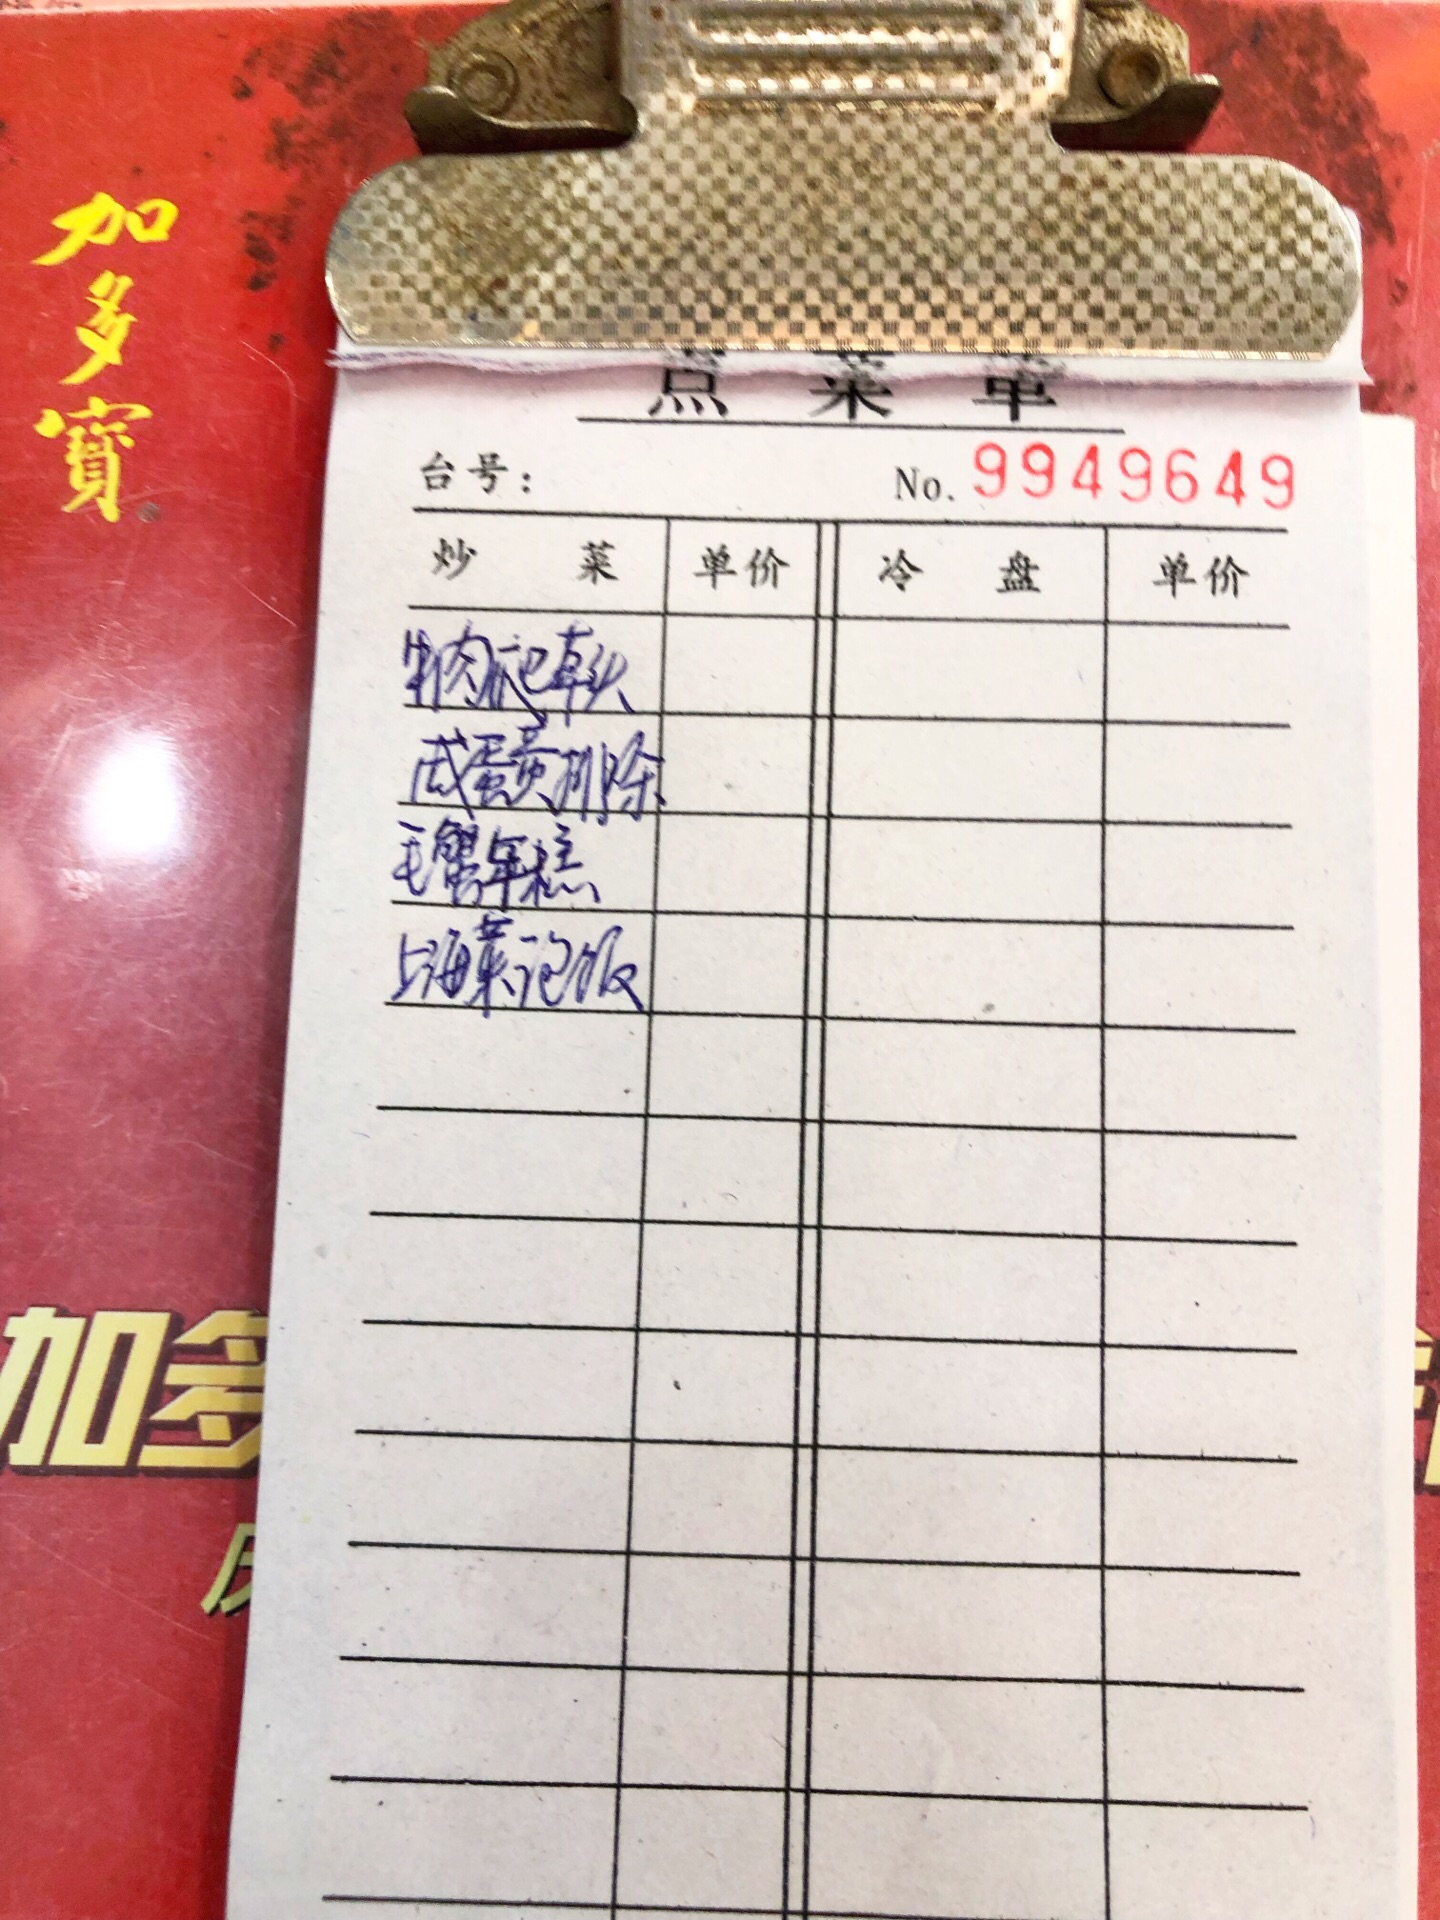 加多寶
点菜单
台号: No. 9949649
炒菜 单价 冷盘 单价
牛肉
咸蛋黄排
毛蟹年糕
上海菜泡饭
加多